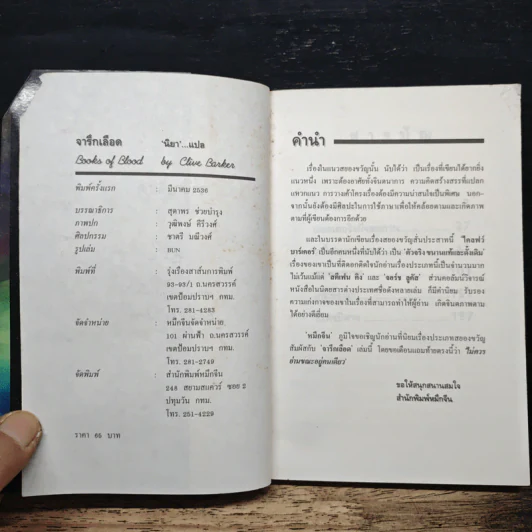 จารึกเลือด 'นียา'...แปล
Books of Blood by Clive Barker
พิมพ์ครั้งแรก : มีนาคม 2536
บรรณาธิการ : สุดาพร ช่วยบำรุง
ภาพปก : วุฒิพงษ์ ศิริวงศ์
ศิลปกรรม : ชาตรี มณีวงศ์
รูปเล่ม : BUN
พิมพ์ที่ : รุ่งเรืองสาส์นการพิมพ์
93-93/1 ถ.นครสวรรค์
เขตป้อมปราบฯ กทม.
โทร. 281-4283
จัดจำหน่าย : หมึกจีนจัดจำหน่าย
101 ผ่านฟ้า ถ.นครสวรรค์
เขตป้อมปราบฯ กทม.
โทร. 281-2749
จัดพิมพ์ : สำนักพิมพ์หมึกจีน
248 สยามสแควร์ ซอย 2
ปทุมวัน กทม.
โทร. 251-4229
ราคา 65 บาท
คำนำ
เรื่องในแนวสยองขวัญนั้น นับได้ว่า เป็นเรื่องที่เขียนได้ยากยิ่ง
แนวหนึ่ง เพราะต้องอาศัยทั้งจินตนาการ ความคิดสร้างสรรที่แปลก
แหวกแนว การวางเค้าโครงเรื่องต้องมีความน่าสนใจเป็นพิเศษ นอก-
จากนั้นยังต้องมีศิลปะในการใช้ภาษาเพื่อให้คล้อยตามและเกิดภาพ
ตามที่ผู้เขียนต้องการอีกด้วย
และในบรรดานักเขียนเรื่องสยองขวัญสั่นประสาทนี้ 'ไคลฟว์
บาร์เคอร์' เป็นอีกคนหนึ่งที่นับได้ว่า เป็น 'ตัวจริง ขนานแท้และดั้งเดิม'
เรื่องของเขาเป็นที่ติดอกติดใจนักอ่านเรื่องประเภทนี้เป็นจำนวนมาก
ไม่เว้นแม้แต่ 'สตีเฟ่น คิง' และ 'จอร์จ ลูคัส' ส่วนคอลัมน์วิจารณ์
หนังสือในนิตยสารต่างประเทศชื่อดังหลายเล่ม ก็มีคำนิยม รับรอง
ความเก่งกาจของเขาในเรื่องที่สามารถทำให้ผู้อ่าน เกิดจินตภาพตาม
ได้อย่างดีเยี่ยม
'หมึกจีน' ภูมิใจขอเชิญนักอ่านที่นิยมเรื่องประเภทสยองขวัญ
สัมผัสกับ 'จารึกเลือด' เล่มนี้ โดยขอเตือนแถมท้ายตรงนี้ว่า 'ไม่ควร
อ่านขณะอยู่คนเดียว'
ขอให้สนุกสนานสมใจ
สำนักพิมพ์หมึกจีน